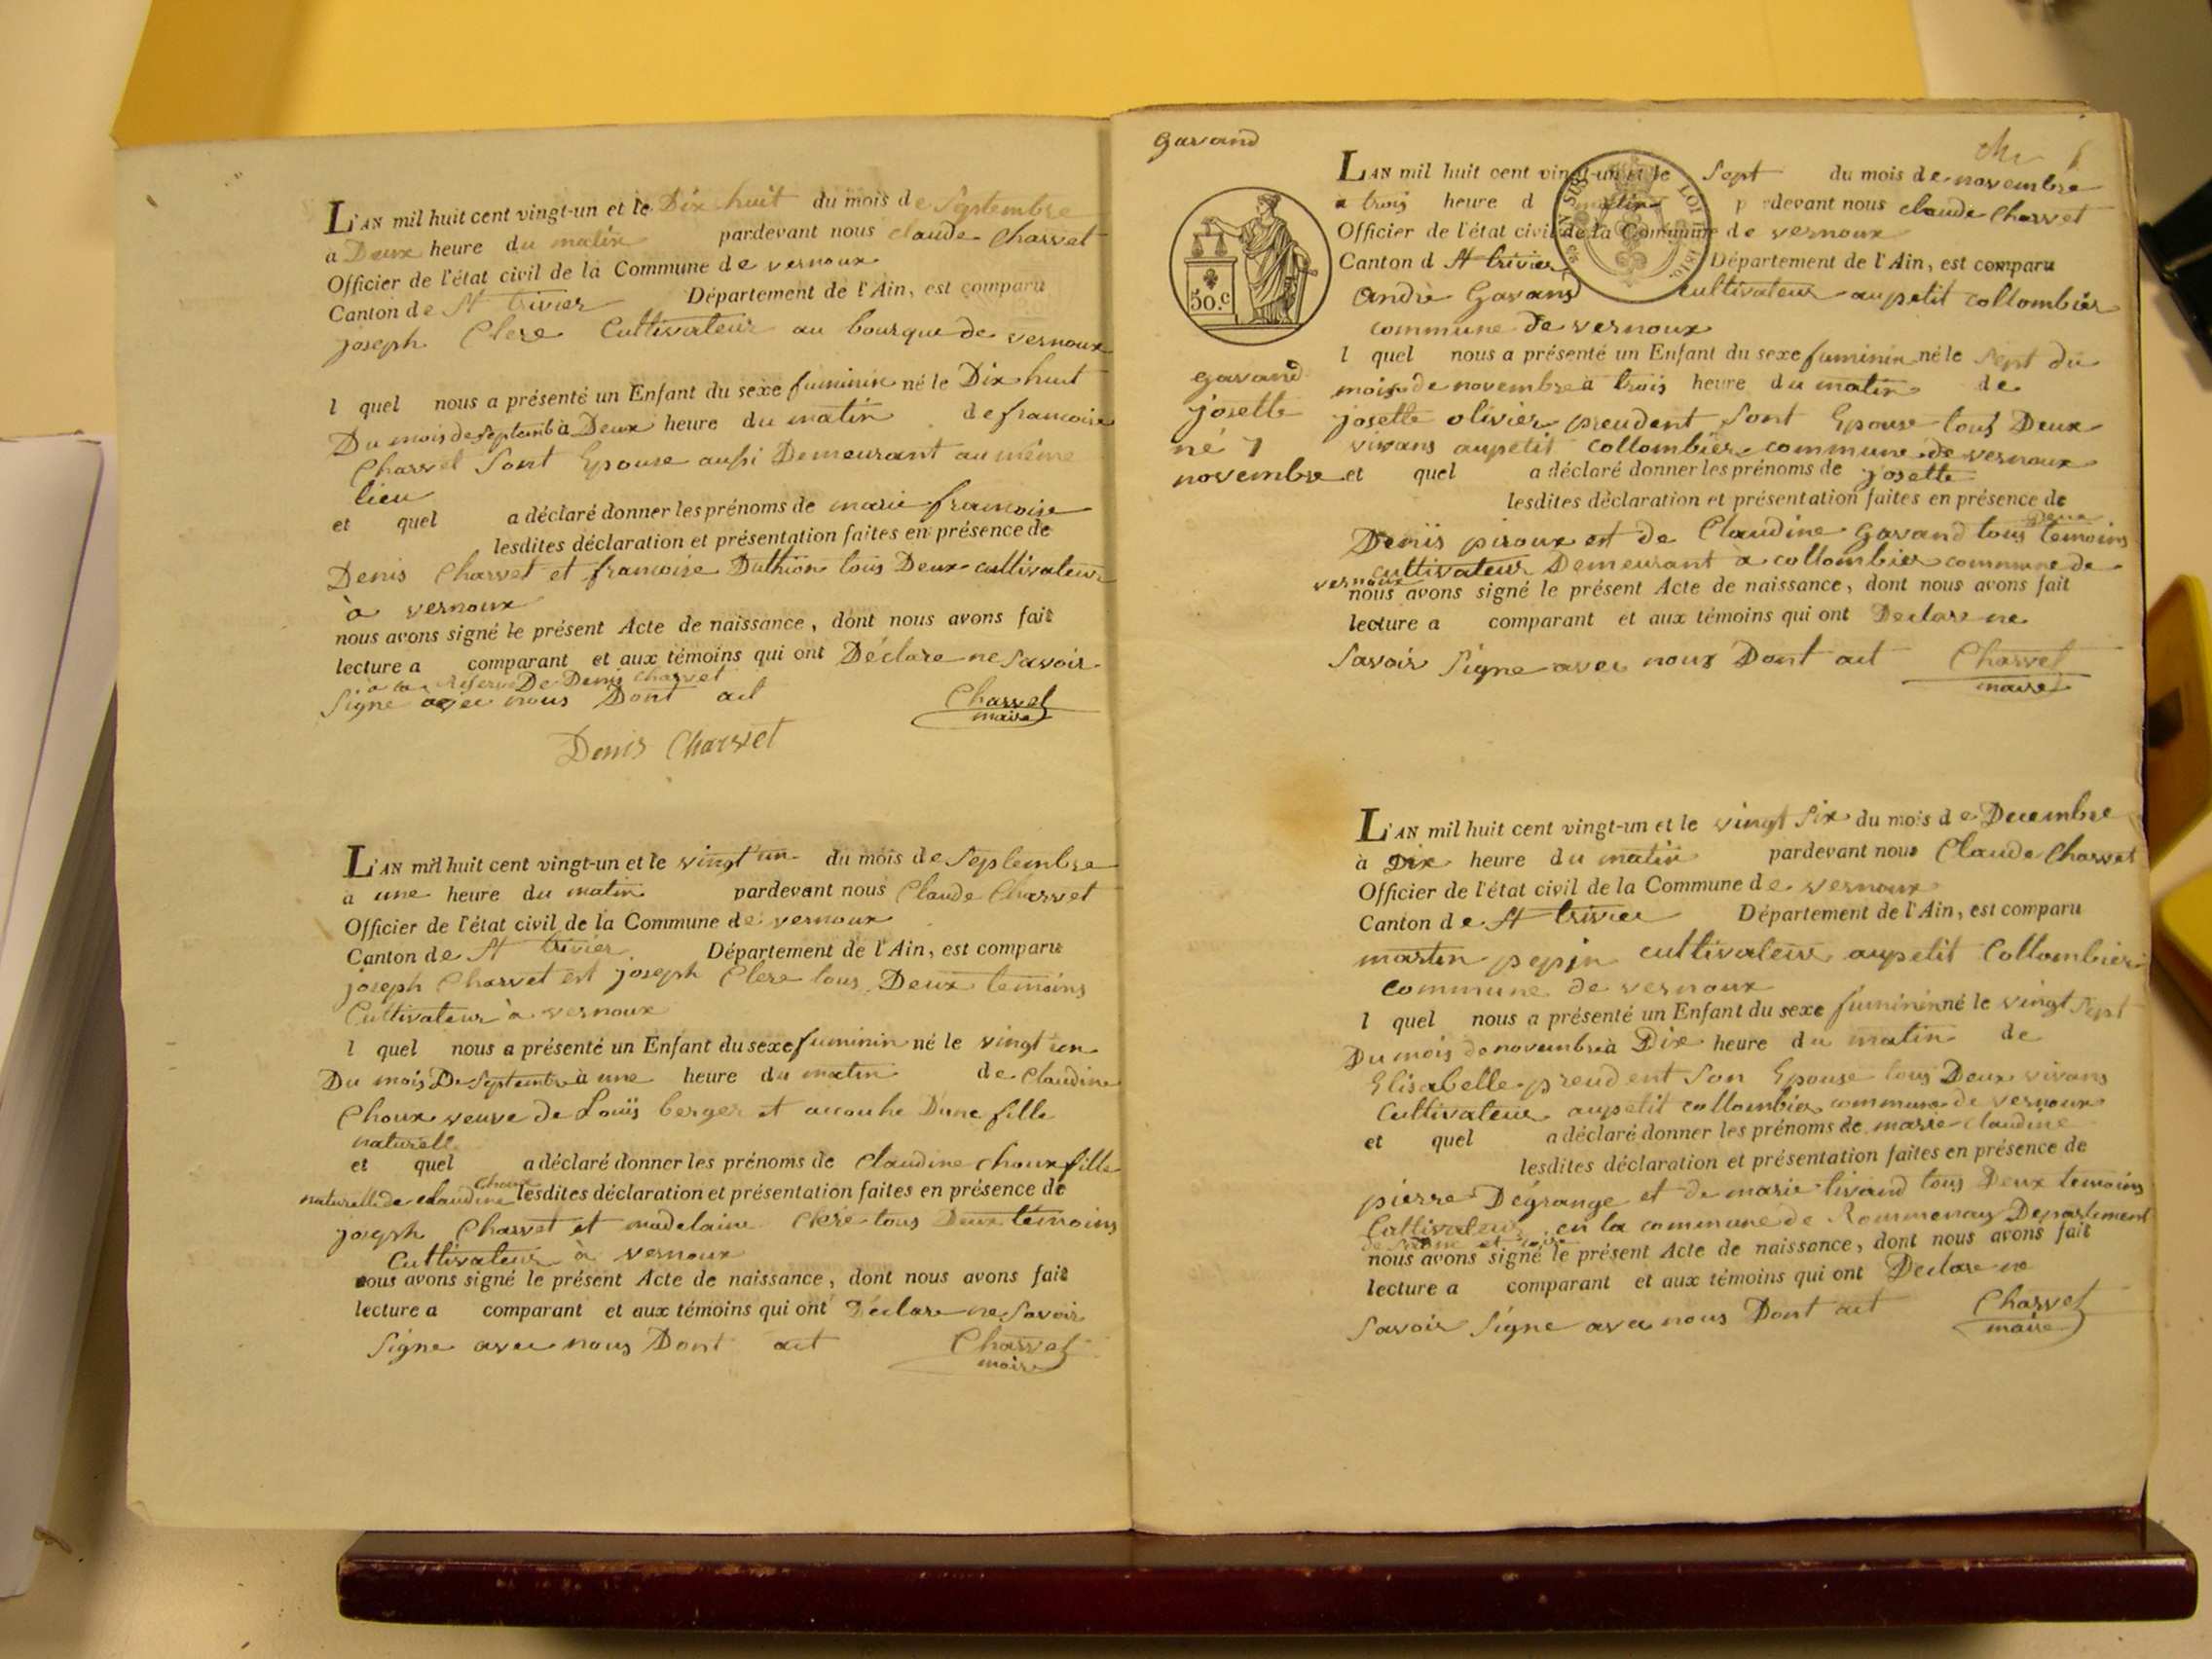 L'AN mil huit cent vingt-un et le Dix huit du mois de Septembre
a Deux heure du matin pardevant nous claude Charvet
Officier de l'état civil de la Commune de vernoux
Canton de St trivier Département de l'Ain, est comparu
joseph Clere Cultivateur au bourque de vernoux
l quel nous a présenté un Enfant du sexe fuminin né le Dix huit
Du mois de septemb à Deux heure du matin de francoise
Charvet Sont Epouse aussi Demeurant au même
lieu
et quel a déclaré donner les prénoms de marie francoise
lesdites déclaration et présentation faites en présence de
Denis Charvet et francoise Duthion tous Deux cultivateur
à vernoux
nous avons signé le présent Acte de naissance, dont nous avons fait
lecture a comparant et aux témoins qui ont Déclare ne Savoir
a la Réserve De Denis Charvet
Signe avec nous Dont act Charvet
maire
Denis Charvet
L'AN mil huit cent vingt-un et le vingt un du mois de Septembre
a une heure du matin pardevant nous Claude Charvet
Officier de l'état civil de la Commune de vernoux
Canton de St trivier Département de l'Ain, est comparu
joseph Charvet est joseph Clere tous Deux temoins
Cultivateur à vernoux
l quel nous a présenté un Enfant du sexe fuminin né le vingt un
Du mois De Septembre à une heure du matin de Claudine
Choux veuve de Louïs berger et accouhe D'une fille
naturell
et quel a déclaré donner les prénoms de Claudine Choux fille
naturelle de claudine choux lesdites déclaration et présentation faites en présence de
joseph Charvet et madelaine Clere tous Deux témoins
Cultivateur à vernoux
nous avons signé le présent Acte de naissance, dont nous avons fait
lecture a comparant et aux témoins qui ont Déclare ne Savoir
Signe avec nous Dont act Charvet
maire
gavand
L'AN mil huit cent vingt-un et le Sept du mois de novembre
a trois heure d matin pardevant nous claude Charvet
Officier de l'état civil de la Commune de vernoux
Canton d St trivier Département de l'Ain, est comparu
André Gavand cultivateur au petit collombier
commune de vernoux
50.c
l quel nous a présenté un Enfant du sexe fuminin né le Sept du
mois de novembre à trois heure du matin de
josette olivier preudent Sont Epouse tous Deux
vivans au petit collombier commune de vernoux
gavand
josette
né 7
novembre
et quel a déclaré donner les prénoms de josette
lesdites déclaration et présentation faites en présence de
Deniis piroux et de Claudine Gavand tous Deux temoins
cultivateur Demeurant à collombier commune de
vernoux
nous avons signé le présent Acte de naissance, dont nous avons fait
lecture a comparant et aux témoins qui ont Declare ne
Savoir Signe avec nous Dont act Charvet
maire
L'AN mil huit cent vingt-un et le vingt Six du mois de Decembre
à Dix heure du matin pardevant nous Claude Charvet
Officier de l'état civil de la Commune de vernoux
Canton de St trivier Département de l'Ain, est comparu
martin pepin cultivateur au petit Collombier
commune de vernoux
l quel nous a présenté un Enfant du sexe fuminin né le vingt Sept
Du mois de novembre à Dix heure du matin de
Elisabelle preudent Son Epouse tous Deux vivans
Cultivateur au petit collombier commune de vernoux
et quel a déclaré donner les prénoms de marie claudine
lesdites déclaration et présentation faites en présence de
pierre Dégrange et de marie livand tous Deux temoins
Cultivateur en la commune de Rommenay Departement
de Saone et Loire
nous avons signé le présent Acte de naissance, dont nous avons fait
lecture a comparant et aux témoins qui ont Declare ne
Savoir Signe avec nous Dont act Charvet
maire